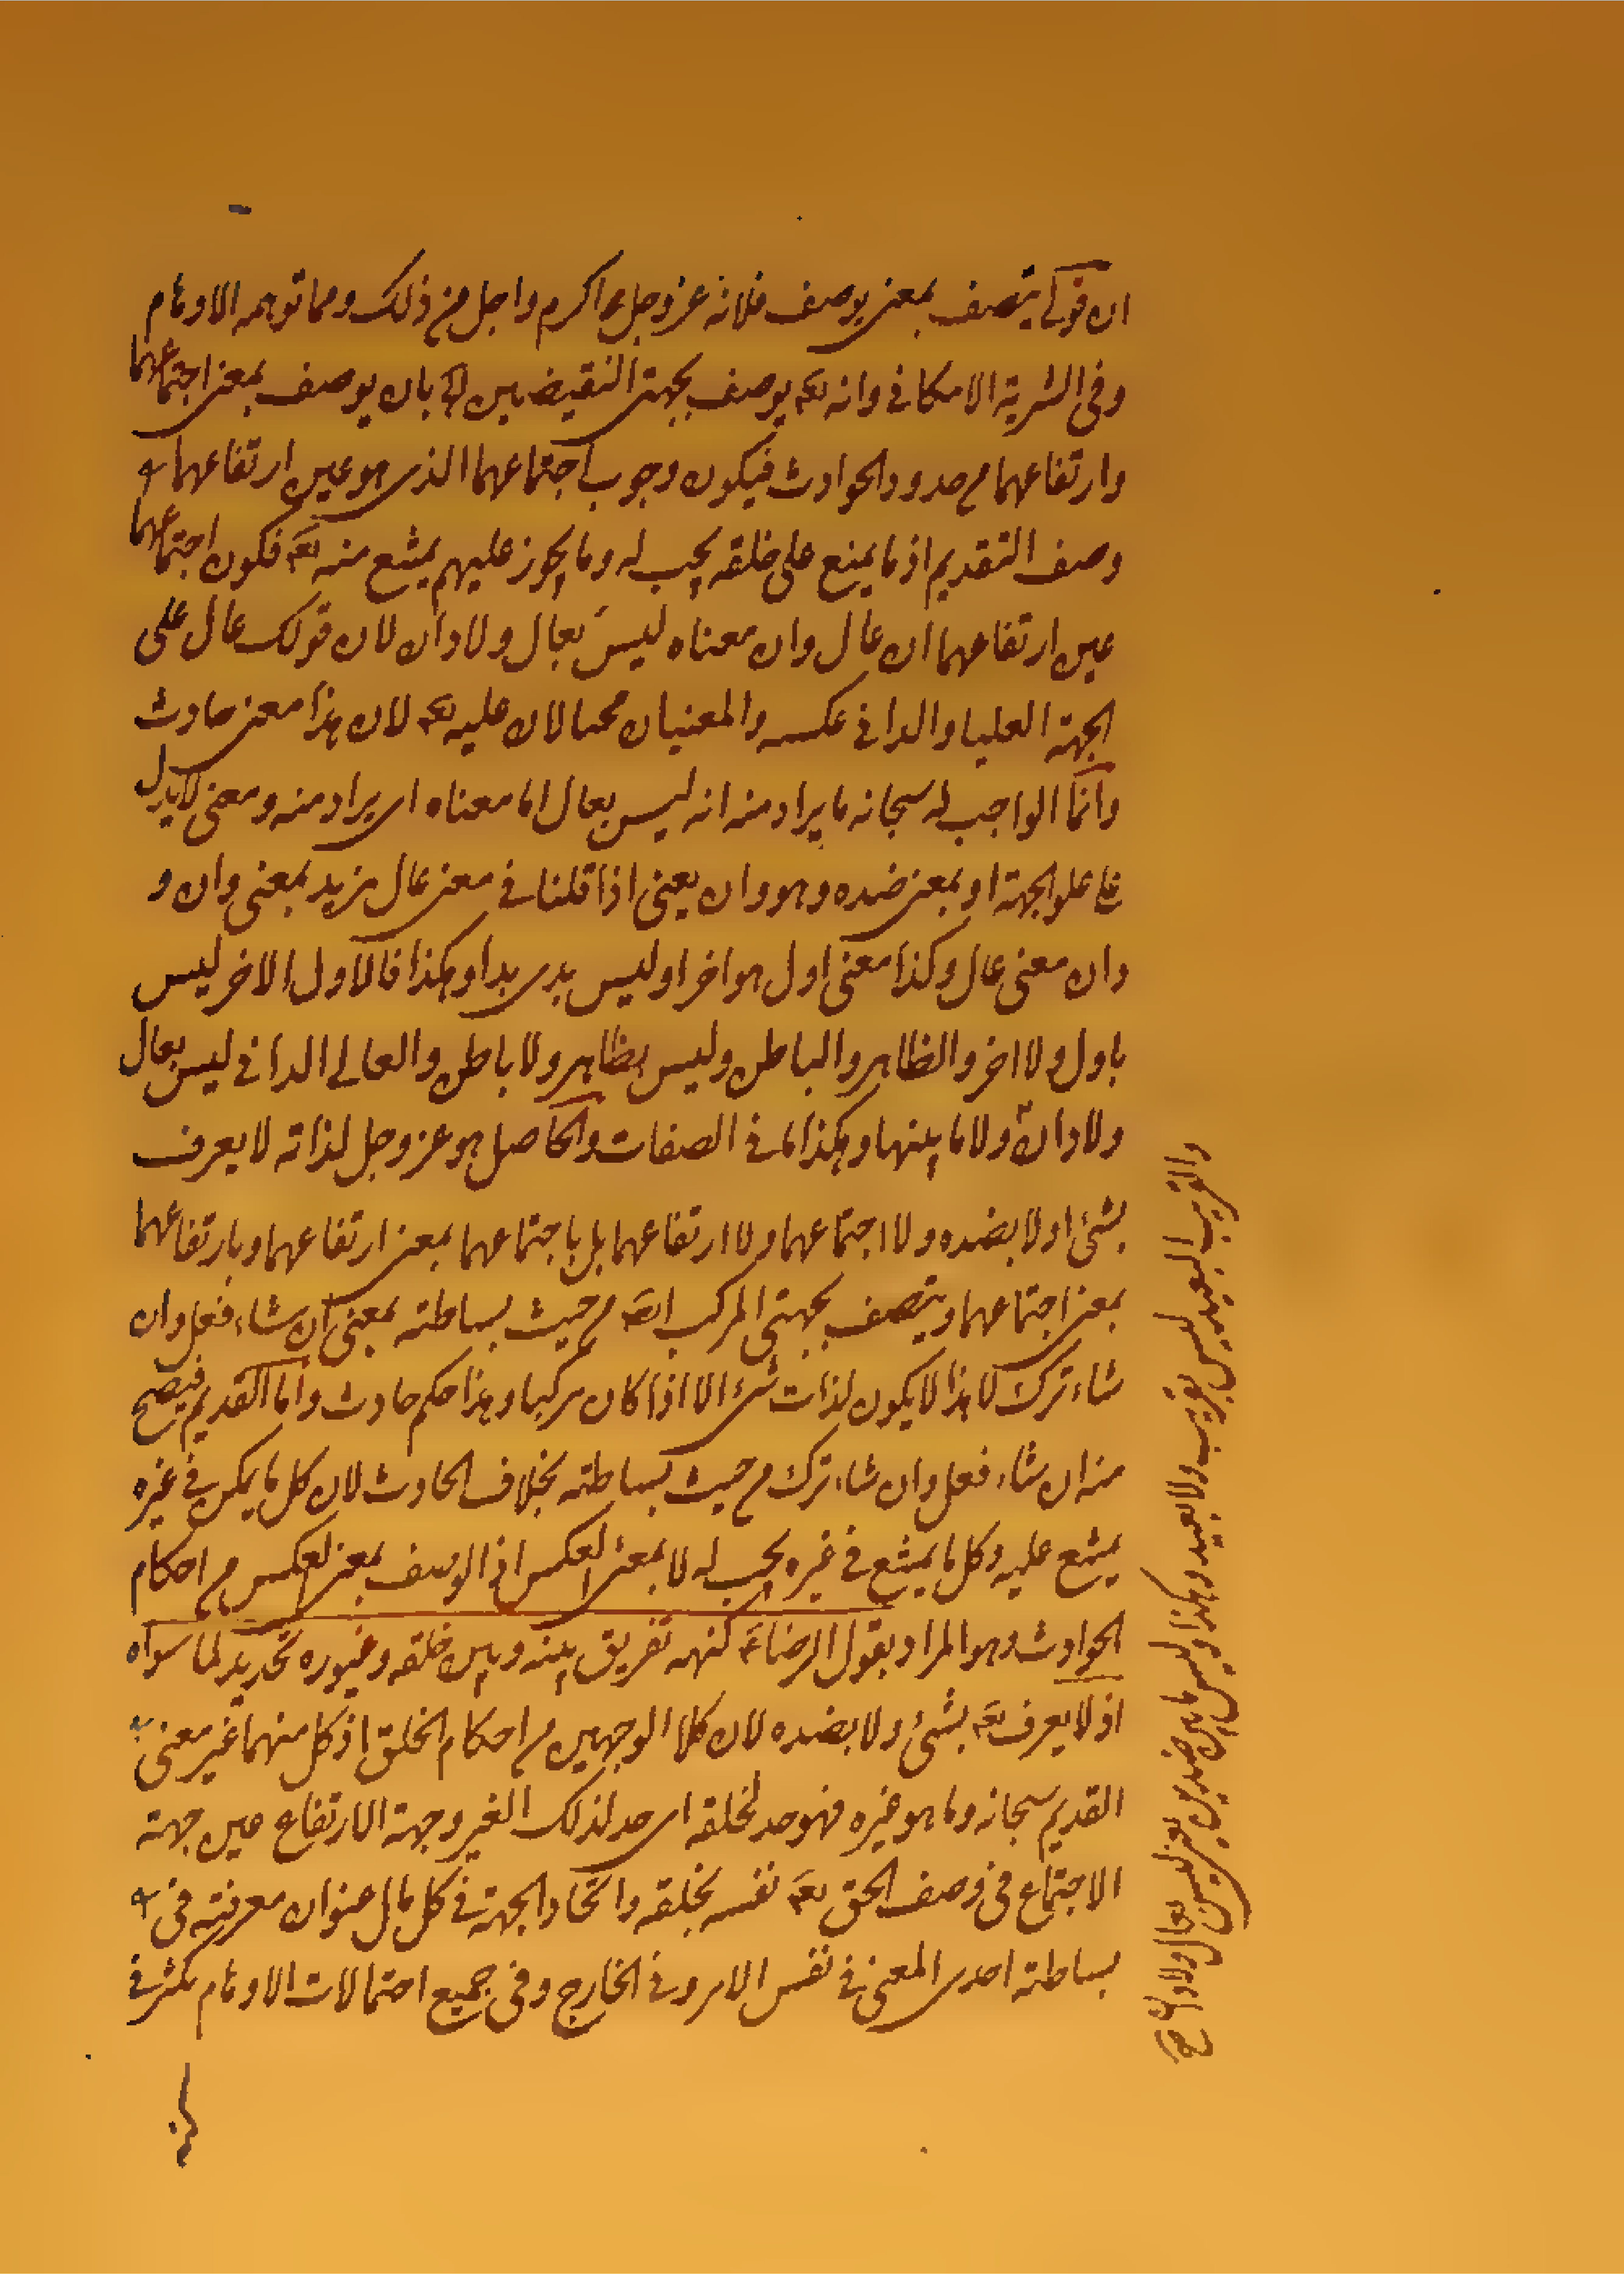 ان قولي يتصف بمعنى يوصف فلانه عز وجل اكرم واجل من ذلك ومما توهمه الاوهام
وفى الشرية الامكانى وانه تعه يوصف بجهتى النقيضين بان يوصف بمعنى اجتماعهما
وارتفاعهما من حدود الحوادث فيكون وجوب اجتماعهما الذى هو عين ارتفاعهما
وصف التقديم اذ ما يمنع على خلقه يجب له وما يجوز عليهم يمتنع منه تعه فكون اجتماعهما
عين ارتفاعهما ان عال وان معناه ليس بعال ولا دان لان قولك عال على
الجهة العليا والدانى عكسه والمعنيان محالان عليه تعه لان هذا معنى حادث
وانما الواجب له سبحانه ما يراد منه انه ليس بعال اما معناه اى يراد منه ومعنى لا يدل
على علو الجهة او بمعنى ضده وهو دان يعنى اذا قلنا فى معنى عال نريد بمعنى دان و
دان معنى عال وكذا معنى اول هو اخر او ليس بدى بدا وهكذا فالاول الاخر ليس
باول ولا اخر والظاهر والباطن وليس بظاهر ولا باطن والعالى الدانى ليس بعال
ولا دان ولا ما بينهما وهكذا فى الصفات والحاصل هو عز وجل لذاته لا يعرف
بشئ اولا بضده ولا اجتماعهما ولا ارتفاعهما بل باجتماعهما بمعنى ارتفاعهما وبارتفاعهما
بمعنى اجتماعهما ويتصف بجهتى المركب من حيث بساطته بمعنى ان شاء فعل وان
شاء ترك لا هذا لا يكون لذات شئ الا اذا كان مركبا وهذا حكم حادث واما القديم فيصح
منه ان شاء فعل وان شاء ترك من حيث بساطته بخلاف الحادث لان كل ما يمكن فى غيره
يمتنع عليه وكل ما يمتنع فى غيره يجب له لا بمعنى العكس اذ الوصف بمعنى العكس من احكام
الحوادث وهو المراد بقول الرضاع كنهه تفريق بينه وبين خلقه وغيوره تحديد لما سواه
اذ لا يعرف تعه بشئ ولا بضده لان كلا الوجهين من احكام الخلق اذ كل منهما غير معنى
القديم سبحانه وما هو غيره فهو حد لخلقه اى حد لذلك الغير وجهة الارتفاع عين جهة
الاجتماع فى وصف الحق تعه نفسه بخلقه واتحاد الجهة فى كل مال عنوان معرفته فى
بساطته احدى المعنى فى نفس الامر وفى الخارج وفى جميع احتمالات الاوهام تكثر فى
والقريب البعيد ليس بقريب ولا بعيد وهكذا وليس ما بين ضدين بين ليس بعال ولا دان